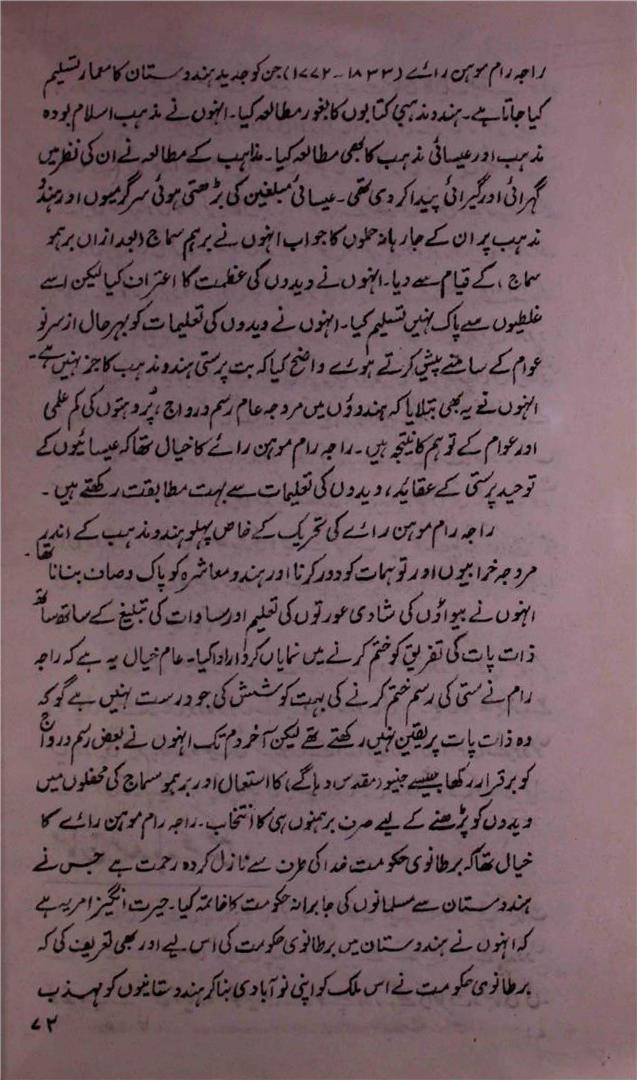 راجہ رام موہن رائے (۱۸۳۳-۱۷۷۲) جن کو جدید ہندوستان کا معمار تسلیم
کیا جاتا ہے۔ ہندو مذہبی کتابوں کا بغور مطالعہ کیا۔ انہوں نے مذہب اسلام بودھ
مذہب اور عیسائی مذہب کا بھی مطالعہ کیا۔ مذاہب کے مطالعہ نے ان کی نظر میں
گہرائی اور گیرائی پیدا کر دی تھی۔ عیسائی مبلغین کی بڑھتی ہوئی سرگرمیوں اور ہندو
مذہب پر ان کے جارہانہ حملوں کا جواب انہوں نے برہم سماج (بعد ازاں برہمو
سماج) کے قیام سے دیا۔ انہوں نے ویدوں کی عظمت کا اعتراف کیا لیکن اسے
غلطیوں سے پاک نہیں تسلیم کیا۔ انہوں نے ویدوں کی تعلیمات کو بہرحال ازسرنو
عوام کے سامنے پیش کرتے ہوئے واضح کیا کہ بت پرستی ہندو مذہب کا جز نہیں ہے۔
انہوں نے یہ بھی بتلایا کہ ہندوؤں میں مروجہ عام رسم و رواج، پروہتوں کی کم علمی
اور عوام کے توہم کا نتیجہ ہیں۔ راجہ رام موہن رائے کا خیال تھا کہ عیسائیوں کے
توحید پرستی کے عقائد، ویدوں کی تعلیمات سے بہت مطابقت رکھتے ہیں۔
راجہ رام موہن رائے کی تحریک کے خاص پہلو ہندو مذہب کے اندر
مروجہ خرابیوں اور توہمات کو دور کرنا اور ہندو معاشرہ کو پاک و صاف بنانا تھا۔
انہوں نے بیواؤں کی شادی عورتوں کی تعلیم اور مساوات کی تبلیغ کے ساتھ ساتھ
ذات پات کی تفریق کو ختم کرنے میں نمایاں کردار ادا کیا۔ عام خیال یہ ہے کہ راجہ
رام نے ستی کی رسم ختم کرنے کی بہت کوشش کی جو درست نہیں ہے گو کہ
وہ ذات پات پر یقین نہیں رکھتے تھے لیکن آخر دم تک انہوں نے بعض رسم و رواج
کو برقرار رکھا جیسے جنیو (مقدس دھاگے) کا استعمال اور برہمو سماج کی محفلوں میں
ویدوں کو پڑھنے کے لیے صرف برہمنوں ہی کا انتخاب۔ راجہ رام موہن رائے کا
خیال تھا کہ برطانوی حکومت خدا کی طرف سے نازل کردہ رحمت ہے جس نے
ہندوستان سے مسلمانوں کی جابرانہ حکومت کا خاتمہ کیا۔ حیرت انگیز امر یہ ہے
کہ انہوں نے ہندوستان میں برطانوی حکومت کی اس لیے اور بھی تعریف کی کہ
برطانوی حکومت نے اس ملک کو اپنی نوآبادی بنا کر ہندوستانیوں کو مہذب
۷۲